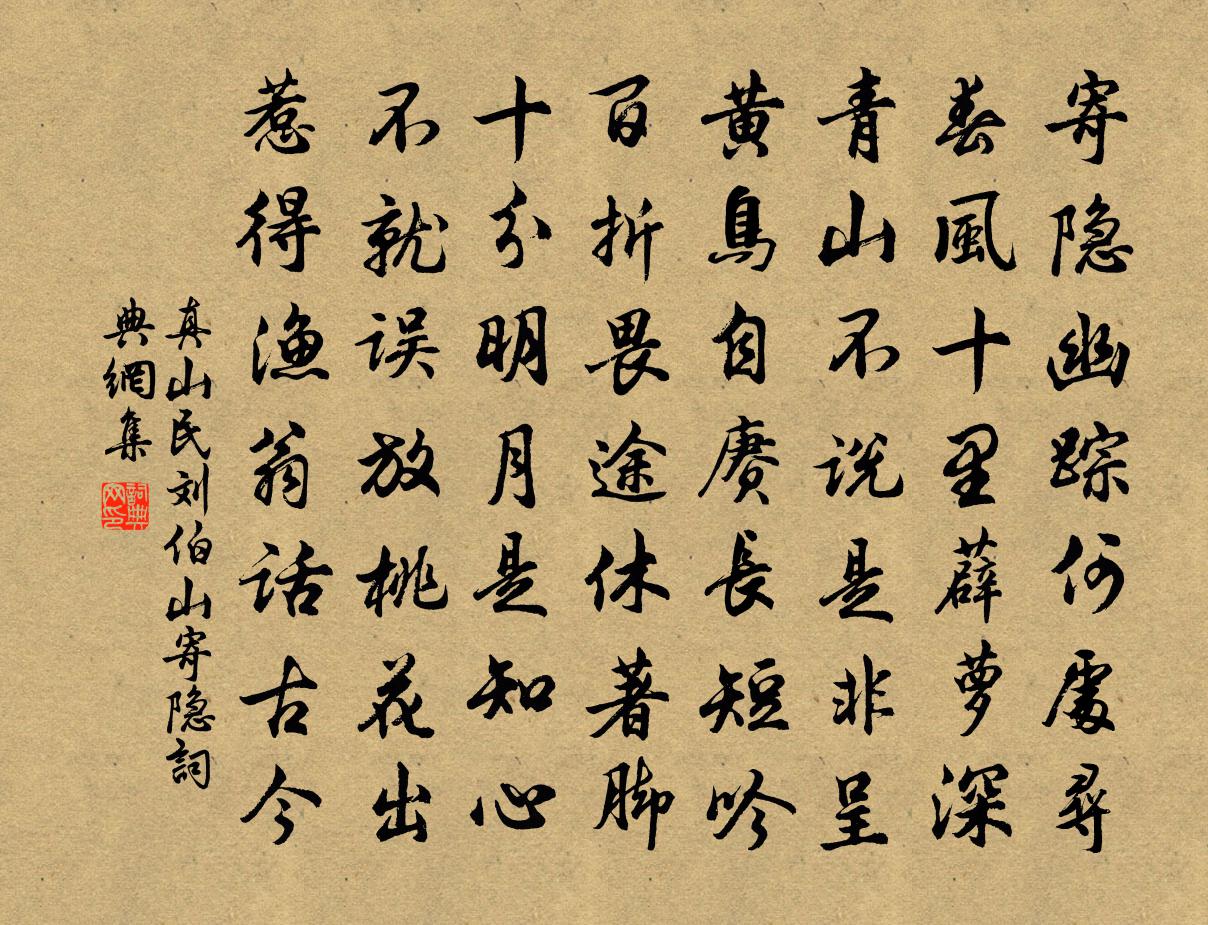 寄隐幽踪何處尋
春風十里薜萝深
青山不说是非呈
黄鳥自赓長短吟
百折畏途休著脚
十分明月是知心
不就误放桃花出
惹得渔翁话古今
真山民刘伯山寄隐詞
典網集
詞典网印